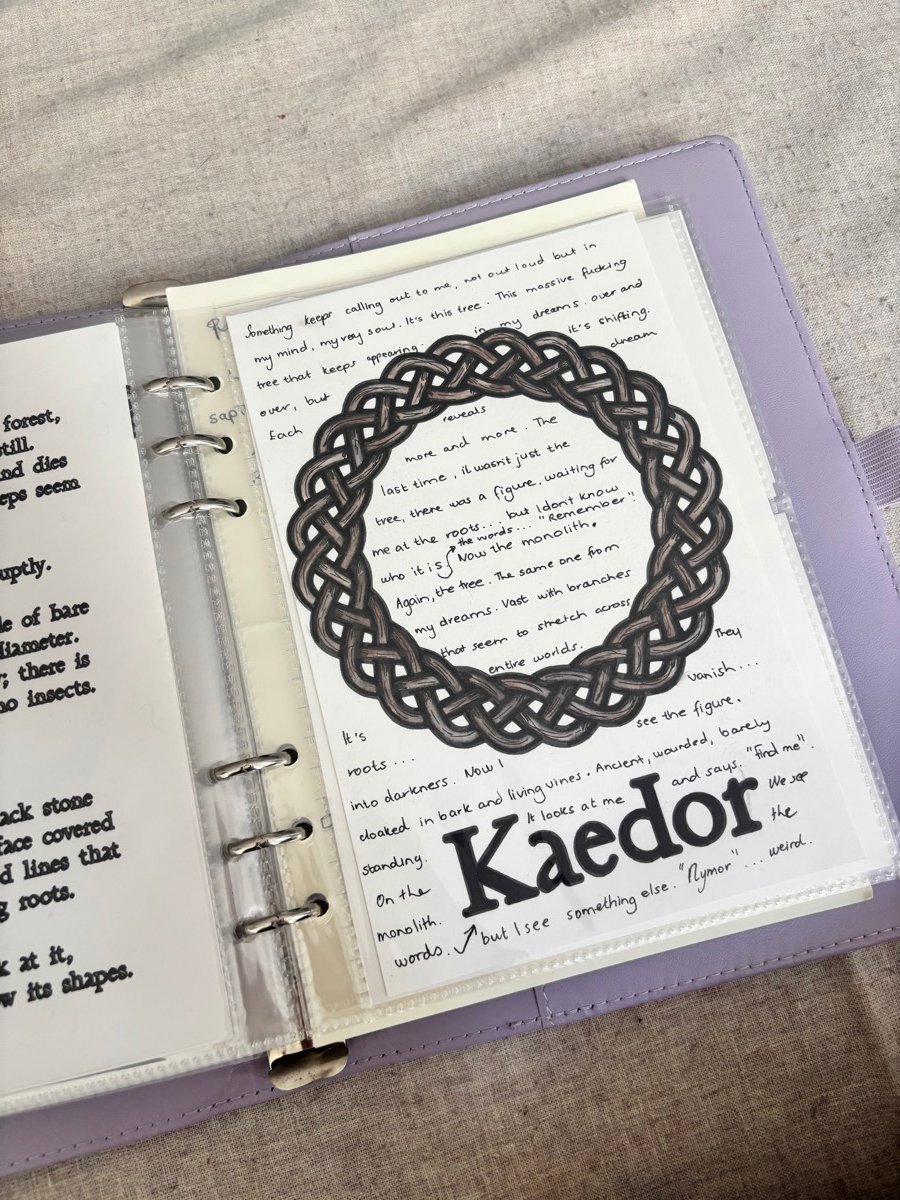 forest,
still.
nd dies
eps seem
uptly.
le of bare
diameter.
; there is
no insects.
ack stone
face covered
d lines that
g roots.
k at it,
w its shapes.
sapl
Something keeps calling out to me, not out loud but in
my mind, my very soul. It's this tree. This massive fucking
tree that keeps appearing. in my dreams. over and
over, but it's shifting.
Each dream
reveals
more and more. The
last time, it wasn't just the
tree, there was a figure, waiting for
me at the roots... but I don't know
who it is the words... "Remember".
Now the monolith.
Again, the tree. The same one from
my dreams. Vast with branches
that seem to stretch across
entire worlds.
It's They
roots... vanish...
into darkness. Now I see the figure.
cloaked in bark and living vines. Ancient, wounded, barely
standing. It looks at me and says. "find me".
On the Kaedor We see
monolith. the
words. but I see something else. "Nymor"... weird.